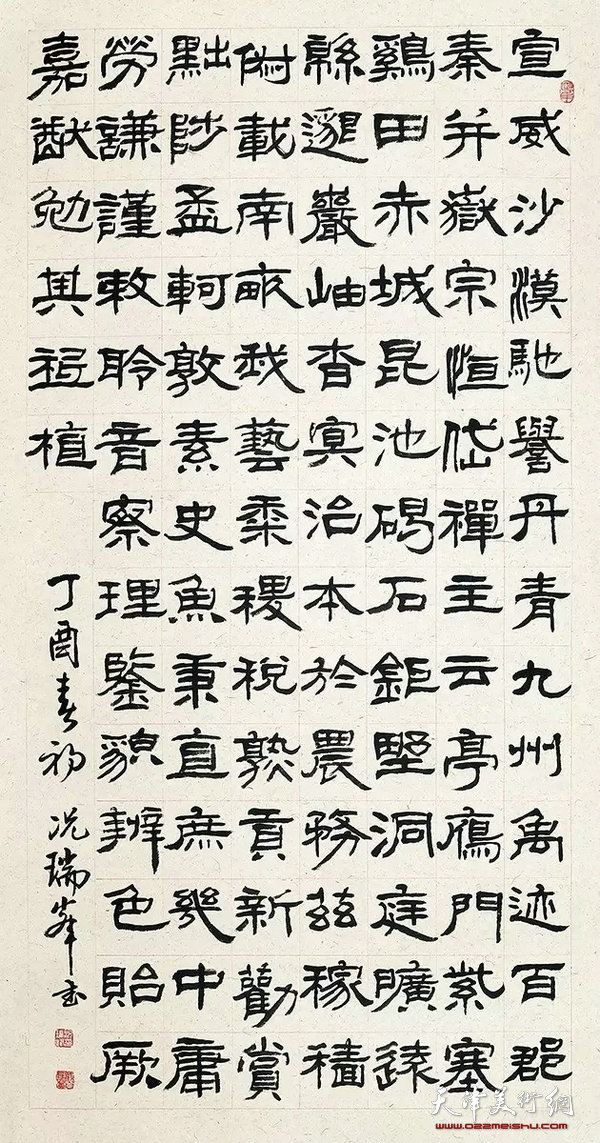 宣威沙漠馳譽丹青九州禹迹百郡
秦并嶽宗恒岱禪主云亭鴈門紫塞
鷄田赤城昆池碣石鉅野洞庭曠遠
緜邈巖岫杳冥治本於農務茲稼穡
俶載南畝我藝黍稷稅熟貢新勸賞
黜陟孟軻敦素史魚秉直庶幾中庸
勞謙謹敕聆音察理鑒貌辨色貽厥
嘉猷勉其祗植
丁酉春初 况瑞峰書
天津美術網
www.022meishu.com